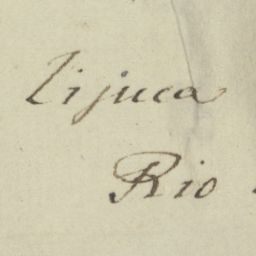 Tijuca
Rio